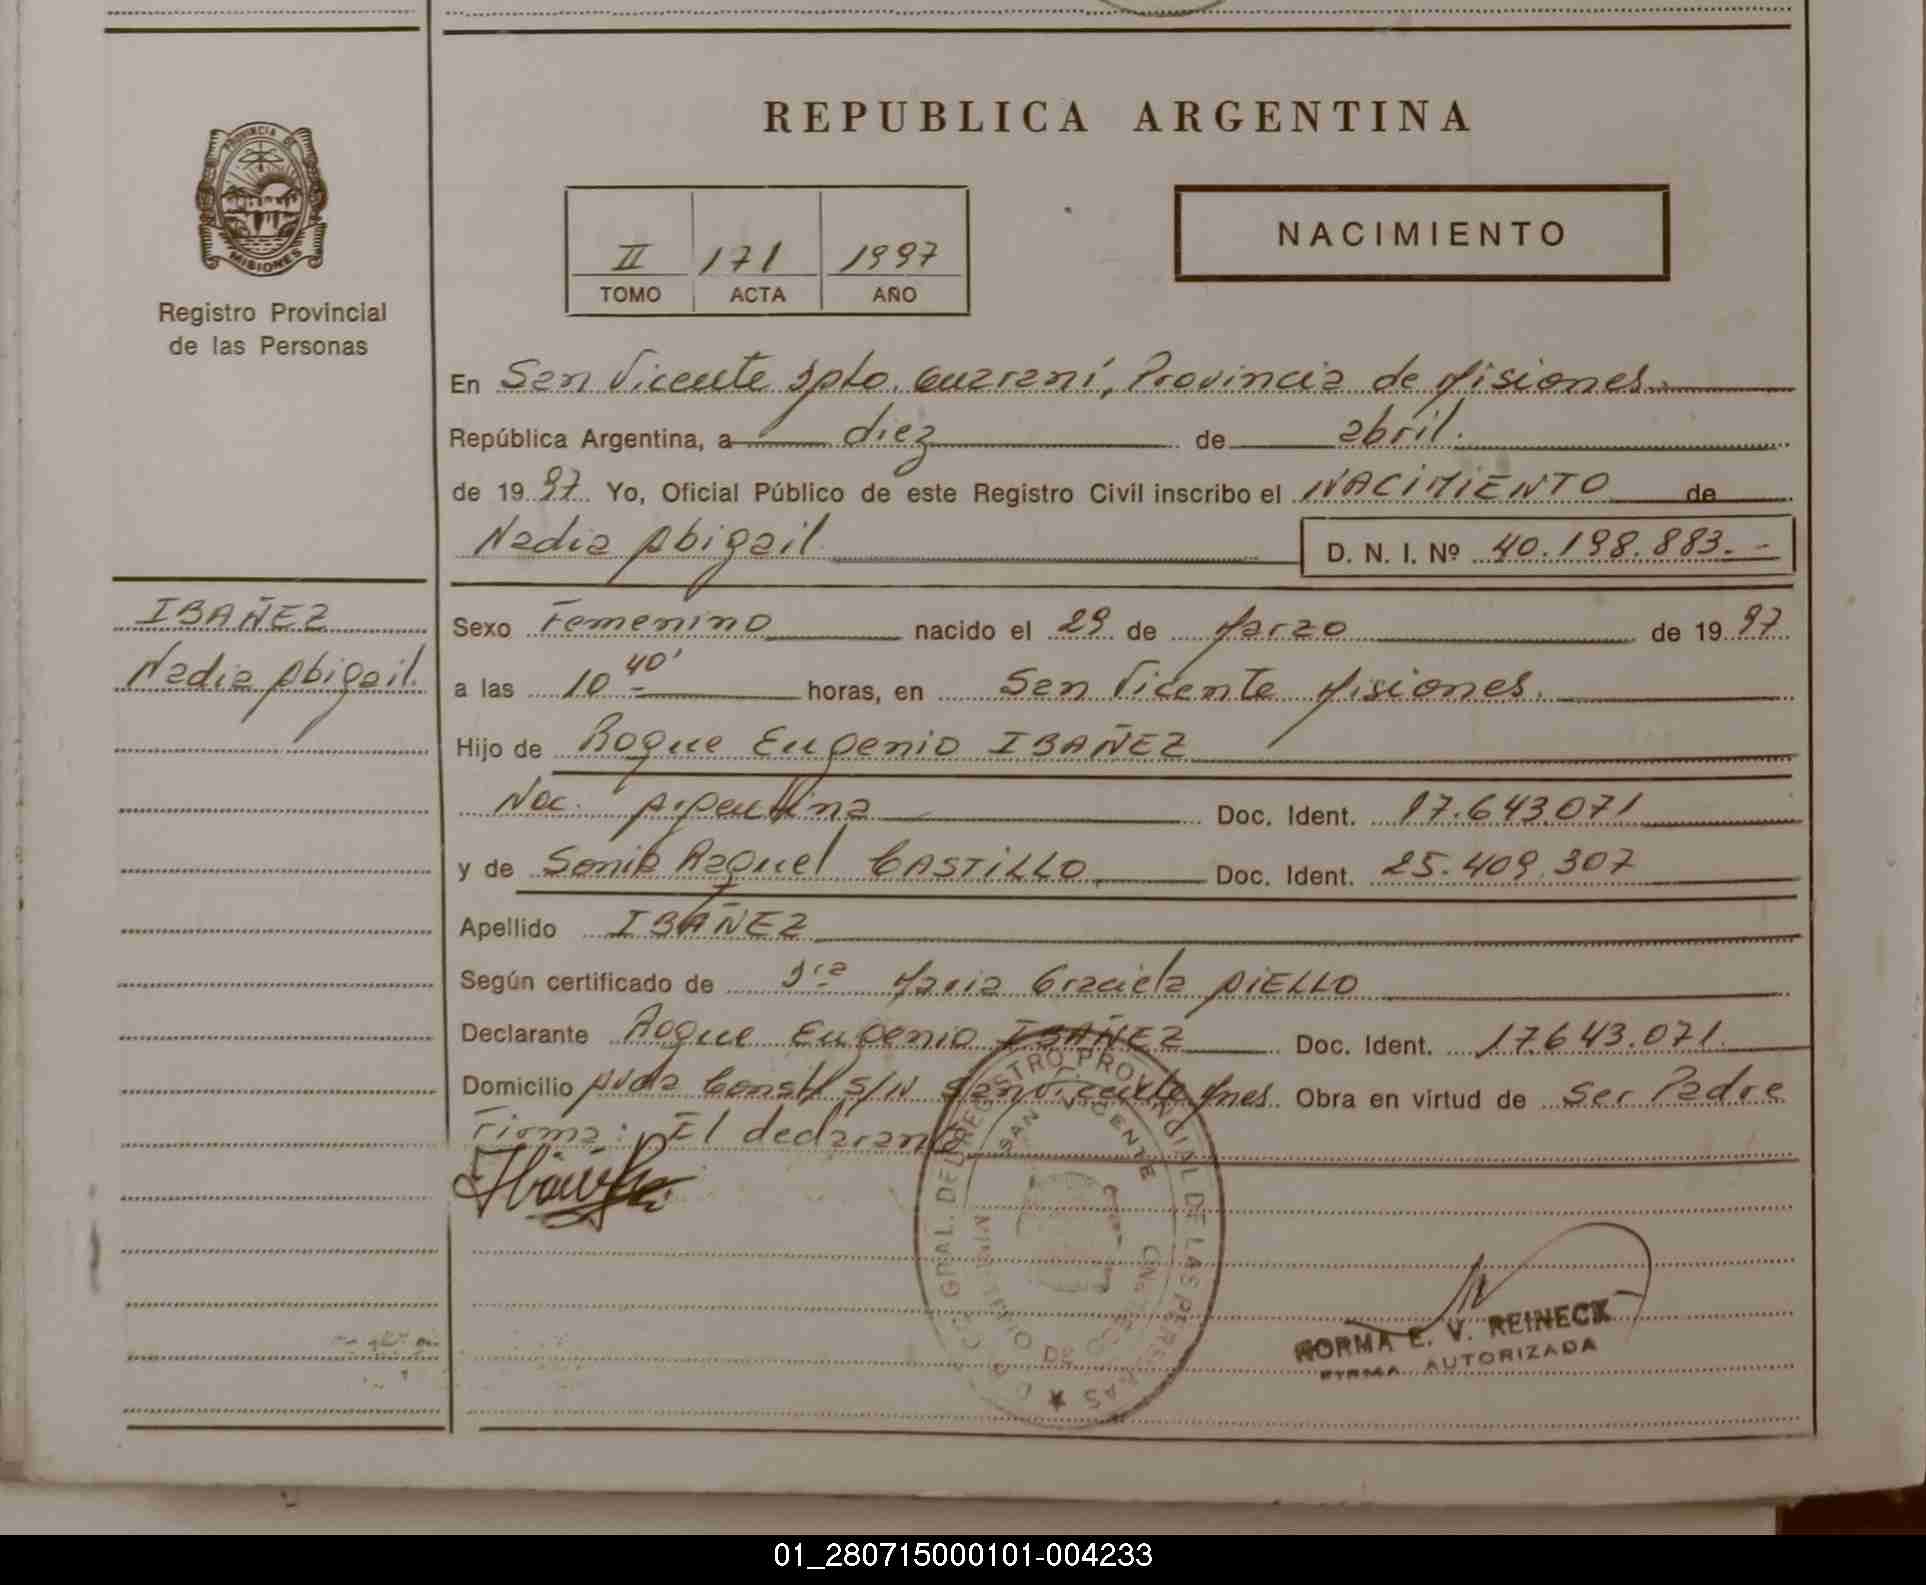 REPUBLICA ARGENTINA
PROVINCIA DE
MISIONES
Registro Provincial
de las Personas
II 171 1997
TOMO ACTA AÑO
NACIMIENTO
En San Vicente Dpto. Guaraní, Provincia de Misiones.
República Argentina, a diez de abril.
de 1997. Yo, Oficial Público de este Registro Civil inscribo el NACIMIENTO de
Nadia Abigail D. N. I. Nº 40.198.883.-
IBAÑEZ
Nadia Abigail.
Sexo Femenino nacido el 29 de Marzo de 1997
a las 10 40' horas, en San Vicente Misiones.
Hijo de Roque Eugenio IBAÑEZ
Nac. Argentina Doc. Ident. 17.643.071
y de Sonia Raquel CASTILLO Doc. Ident. 25.409.307
Apellido IBAÑEZ
Según certificado de Dra Maria Graciela AIELLO
Declarante Roque Eugenio IBAÑEZ Doc. Ident. 17.643.071.
Domicilio Avda Const S/N San Vicente Mnes. Obra en virtud de Ser Padre
Firma: El declarante
REGISTRO PROVINCIAL DE LAS PERSONAS
SAN VICENTE
NORMA E. V. REINECK
FIRMA AUTORIZADA
01_280715000101-004233